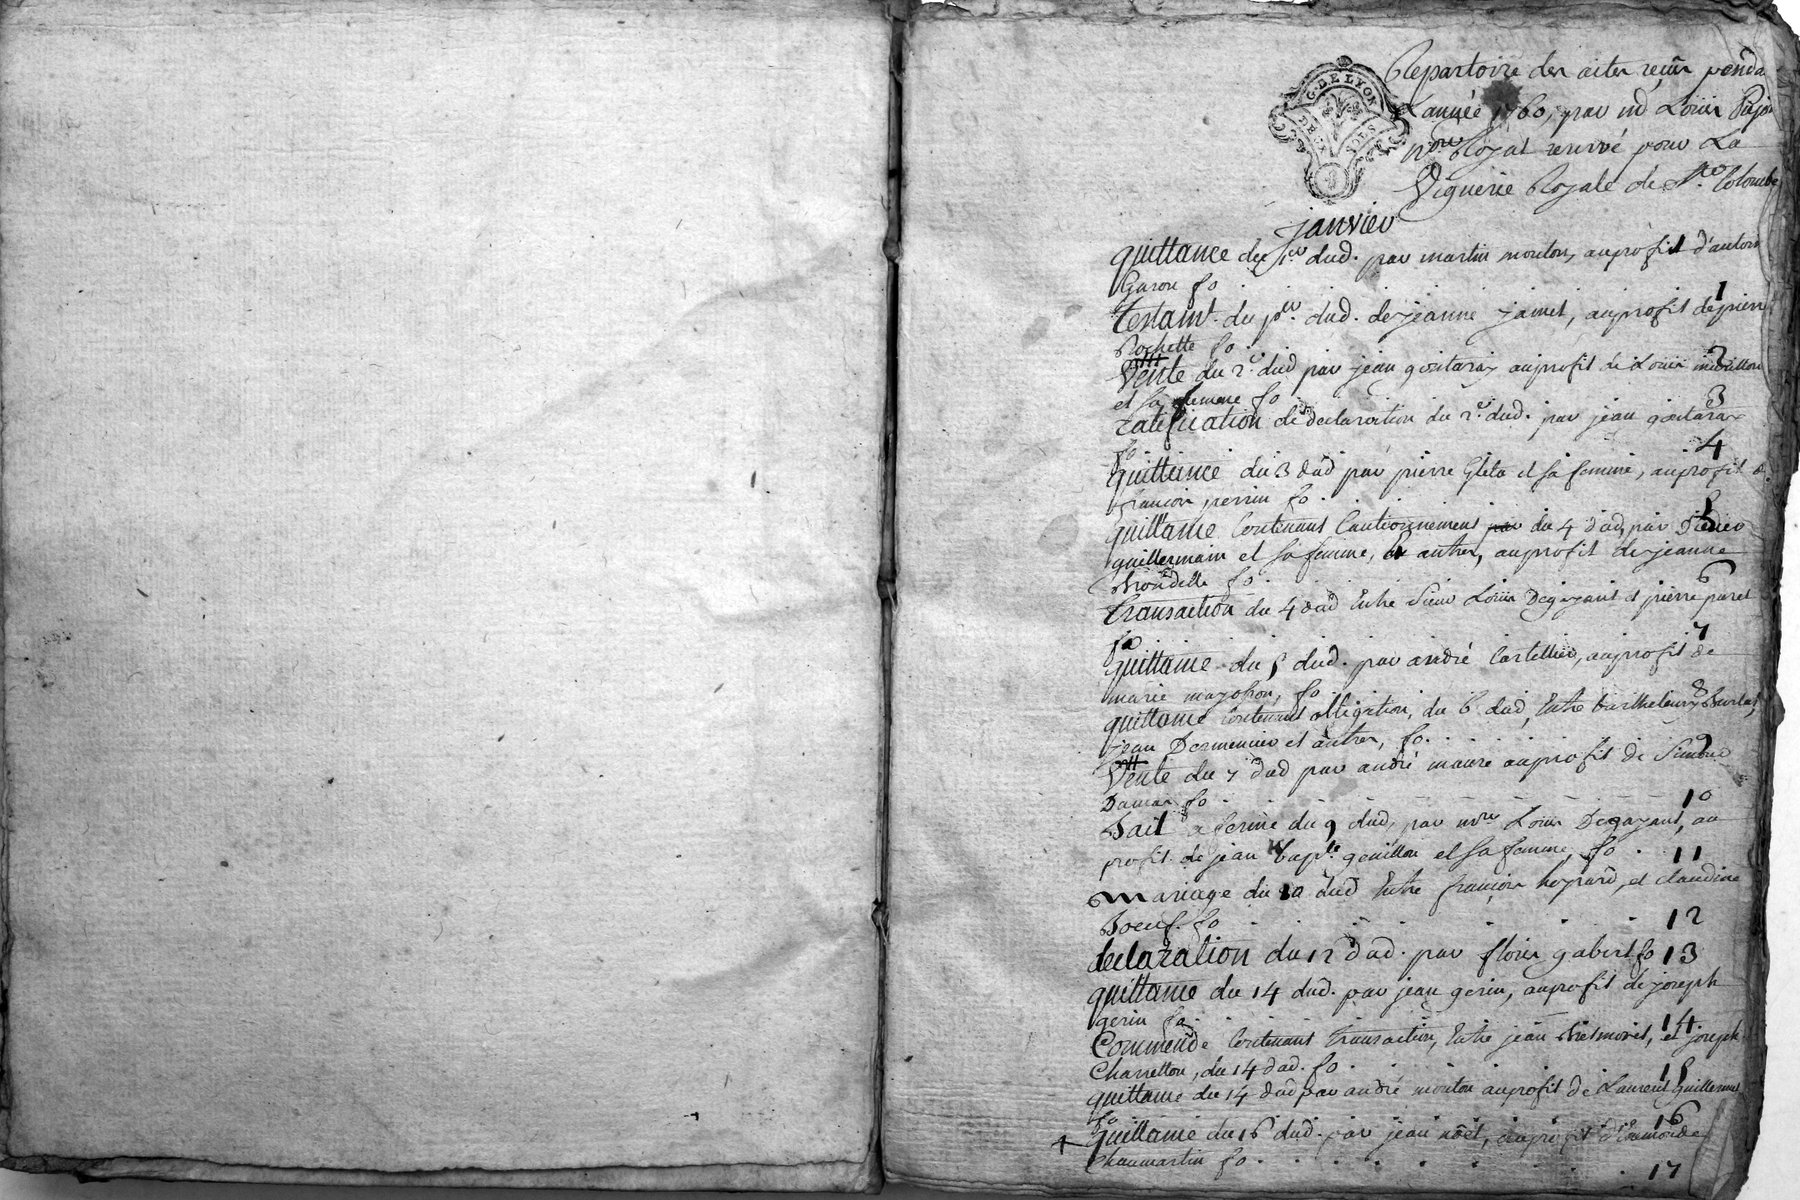 Repartoire des actes reçus penda
L'année 1760, par md Louis Pujo
nre Royal reservé pour La
Viguerie Royale de Ste Colombe
G. DE LYON
DEUX SOLS
janvier
quittance du 1er dud. par martin mouton, au profit d'antoi
Garon fo 1
Testamt du per dud. de jeanne jamet, au profit de pierre
Rochette fo 2
Vente du 2e dud par jean goutaray au profit de Louis
et sa femme fo 3
ratification de declaration du 2e dud. par jean goutaray
fo 4
quittance du 3 dud par pierre Gleta et sa femme, au profit de
françois perrin fo 5
quittance Contenant Cautionnement par du 4 dud, par
guillermain et sa femme, et autres, au profit de jeanne
fo 6
Transaction du 4 dud Entre Sieur Louis Degayant et pierre
fo 7
quittance du 5 dud. par andré Cartellier, au profit de
marie fo 8
quittance Contenant obligation, du 6 dud, Entre barthelemy
jean Dormenieu et autres, fo 9
Vente du 7 dud par andré maure au profit de
Damas fo 10
Bail a ferme du 9 dud, par mre Louis Degayant, au
profit de jean bapte genillon et sa femme, fo 11
mariage du 10 dud Entre françois heyraud, et claudine
Boeuf fo 12
declaration du 12 dud. par floris gabert fo 13
quittance du 14 dud. par jean gerin, au profit de joseph
gerin fo 14
Commende Contenant Transaction, Entre jean et joseph
Charretton, du 14 dud. fo 15
quittance du 14 dud par andré mouton au profit de Laurent Guillermet
fo 16
quittance du 16 dud. par jean noël, au profit
Chaumartin fo 17